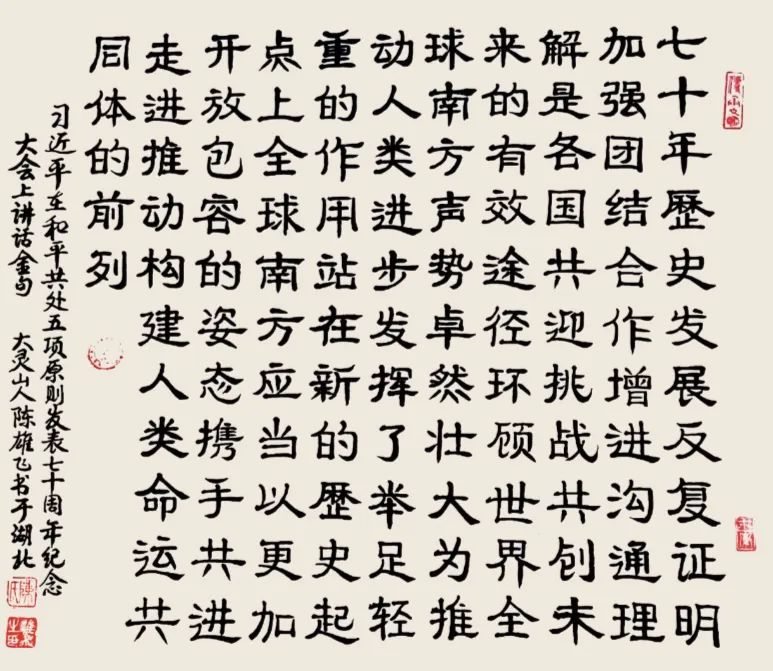 七十年歷史发展反复证明
加强团结合作增进沟通理
解是各国共迎挑战共创未
来的有效途径环顾世界全
球南方声势卓然壮大为推
动人类进步发挥了举足轻
重的作用站在新的歷史起
点上全球南方应当以更加
开放包容的姿态携手共进
走进推动构建人类命运共
同体的前列
习近平在和平共处五项原则发表七十周年纪念
大会上讲话金句 大灵山人陈雄飞书于湖北